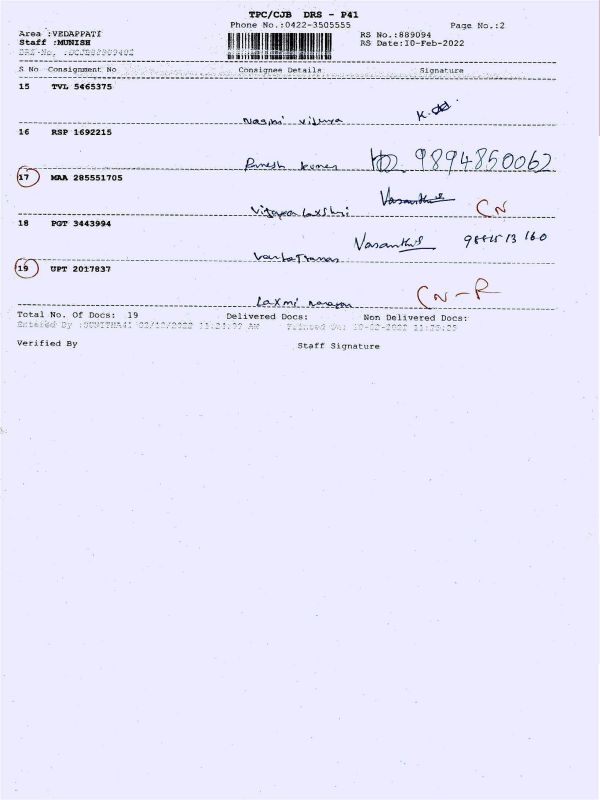 TPC/CJB DRS - P41
Phone No.:0422-3505555
Page No.:2
Area :VEDAPPATI
RS No.:889094
Staff :MUNISH
RS Date:10-Feb-2022
S No Consignment No Consignee Details Signature
15 TVL 5465375
K.
16 RSP 1692215
Ramesh kumar 9894850062
17 MAA 285551705
Vasanthi
Vijaya Laxshmi CN
18 PGT 3443994
Vasanthi
Venkatraman
19 UPT 2017837
Laxmi narayan CN-R
Total No. Of Docs: 19 Delivered Docs: Non Delivered Docs:
Entered By :SUMITHA41 02/10/2022 11:24:02 AM Printed On: 10-02-2022 11:25:25
Verified By
Staff Signature